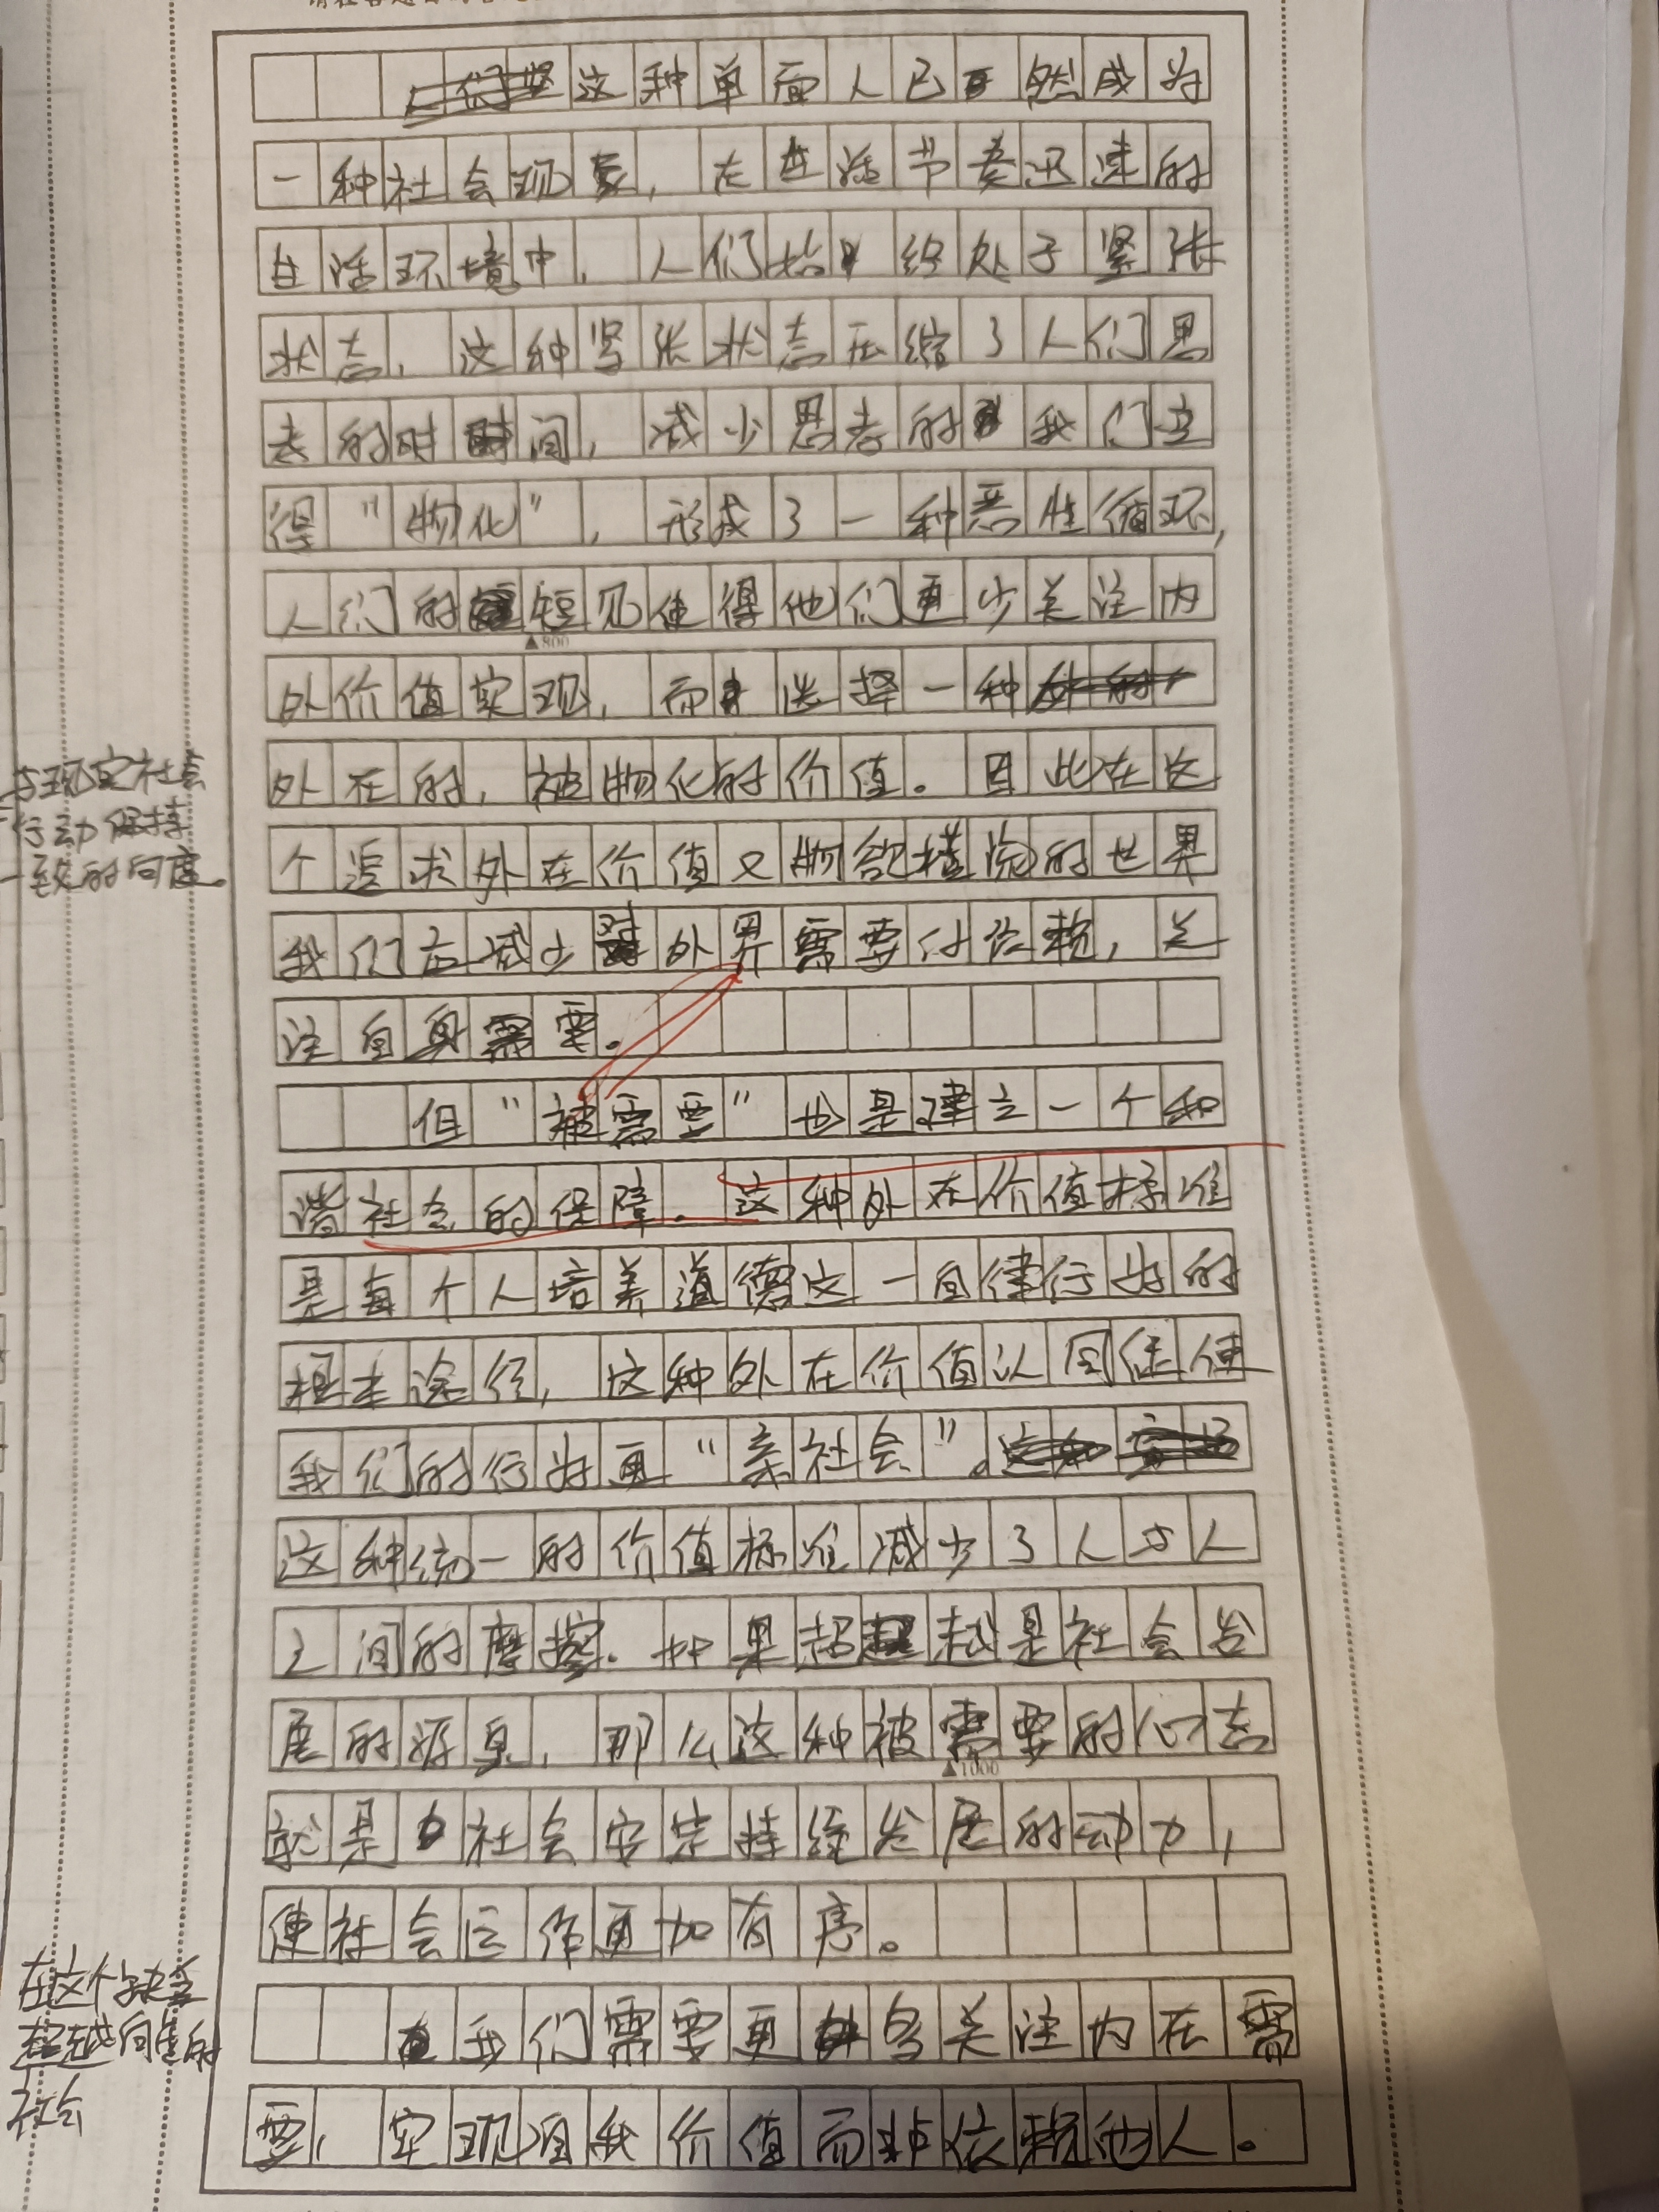 这种单面人已然成为
一种社会现象，在生活节奏迅速的
生活环境中，人们始终处于紧张
状态，这种紧张状态压缩了人们思
考的时间，减少思考的我们变
得“物化”，形成了一种恶性循环，
人们的短见使得他们更少关注内
▲800
外价值实现，而选择一种
外在的，被物化的价值。因此在这
个追求外在价值又物欲横流的世界
我们应减少对外界需要付依赖，关
注自身需要。
但“被需要”也是建立一个和
谐社会的保障。这种外在价值标准
是每个人培养道德这一自律行为的
根本途径，这种外在价值认同促使
我们的行为更“亲社会”。
这种统一的价值标准减少了人与人
之间的摩擦．如果超越是社会发
展的源泉，那么这种被需要的心态
▲1000
就是社会安定持续发展的动力，
使社会运作更加有序。
我们需要更多关注内在需
要，实现自我价值而非依赖他人。
与现实社会
行动保持
一致的向度。
在这个缺乏
超越向度的
社会